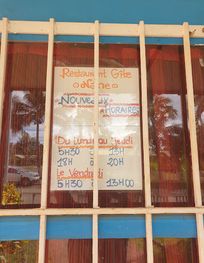 Restaurant Gîte
Nouveaux
HORAIRES
Du Lundi au Jeudi
5H30 à 13H
18H à 20H
Le Vendredi
5H30 à 13H00